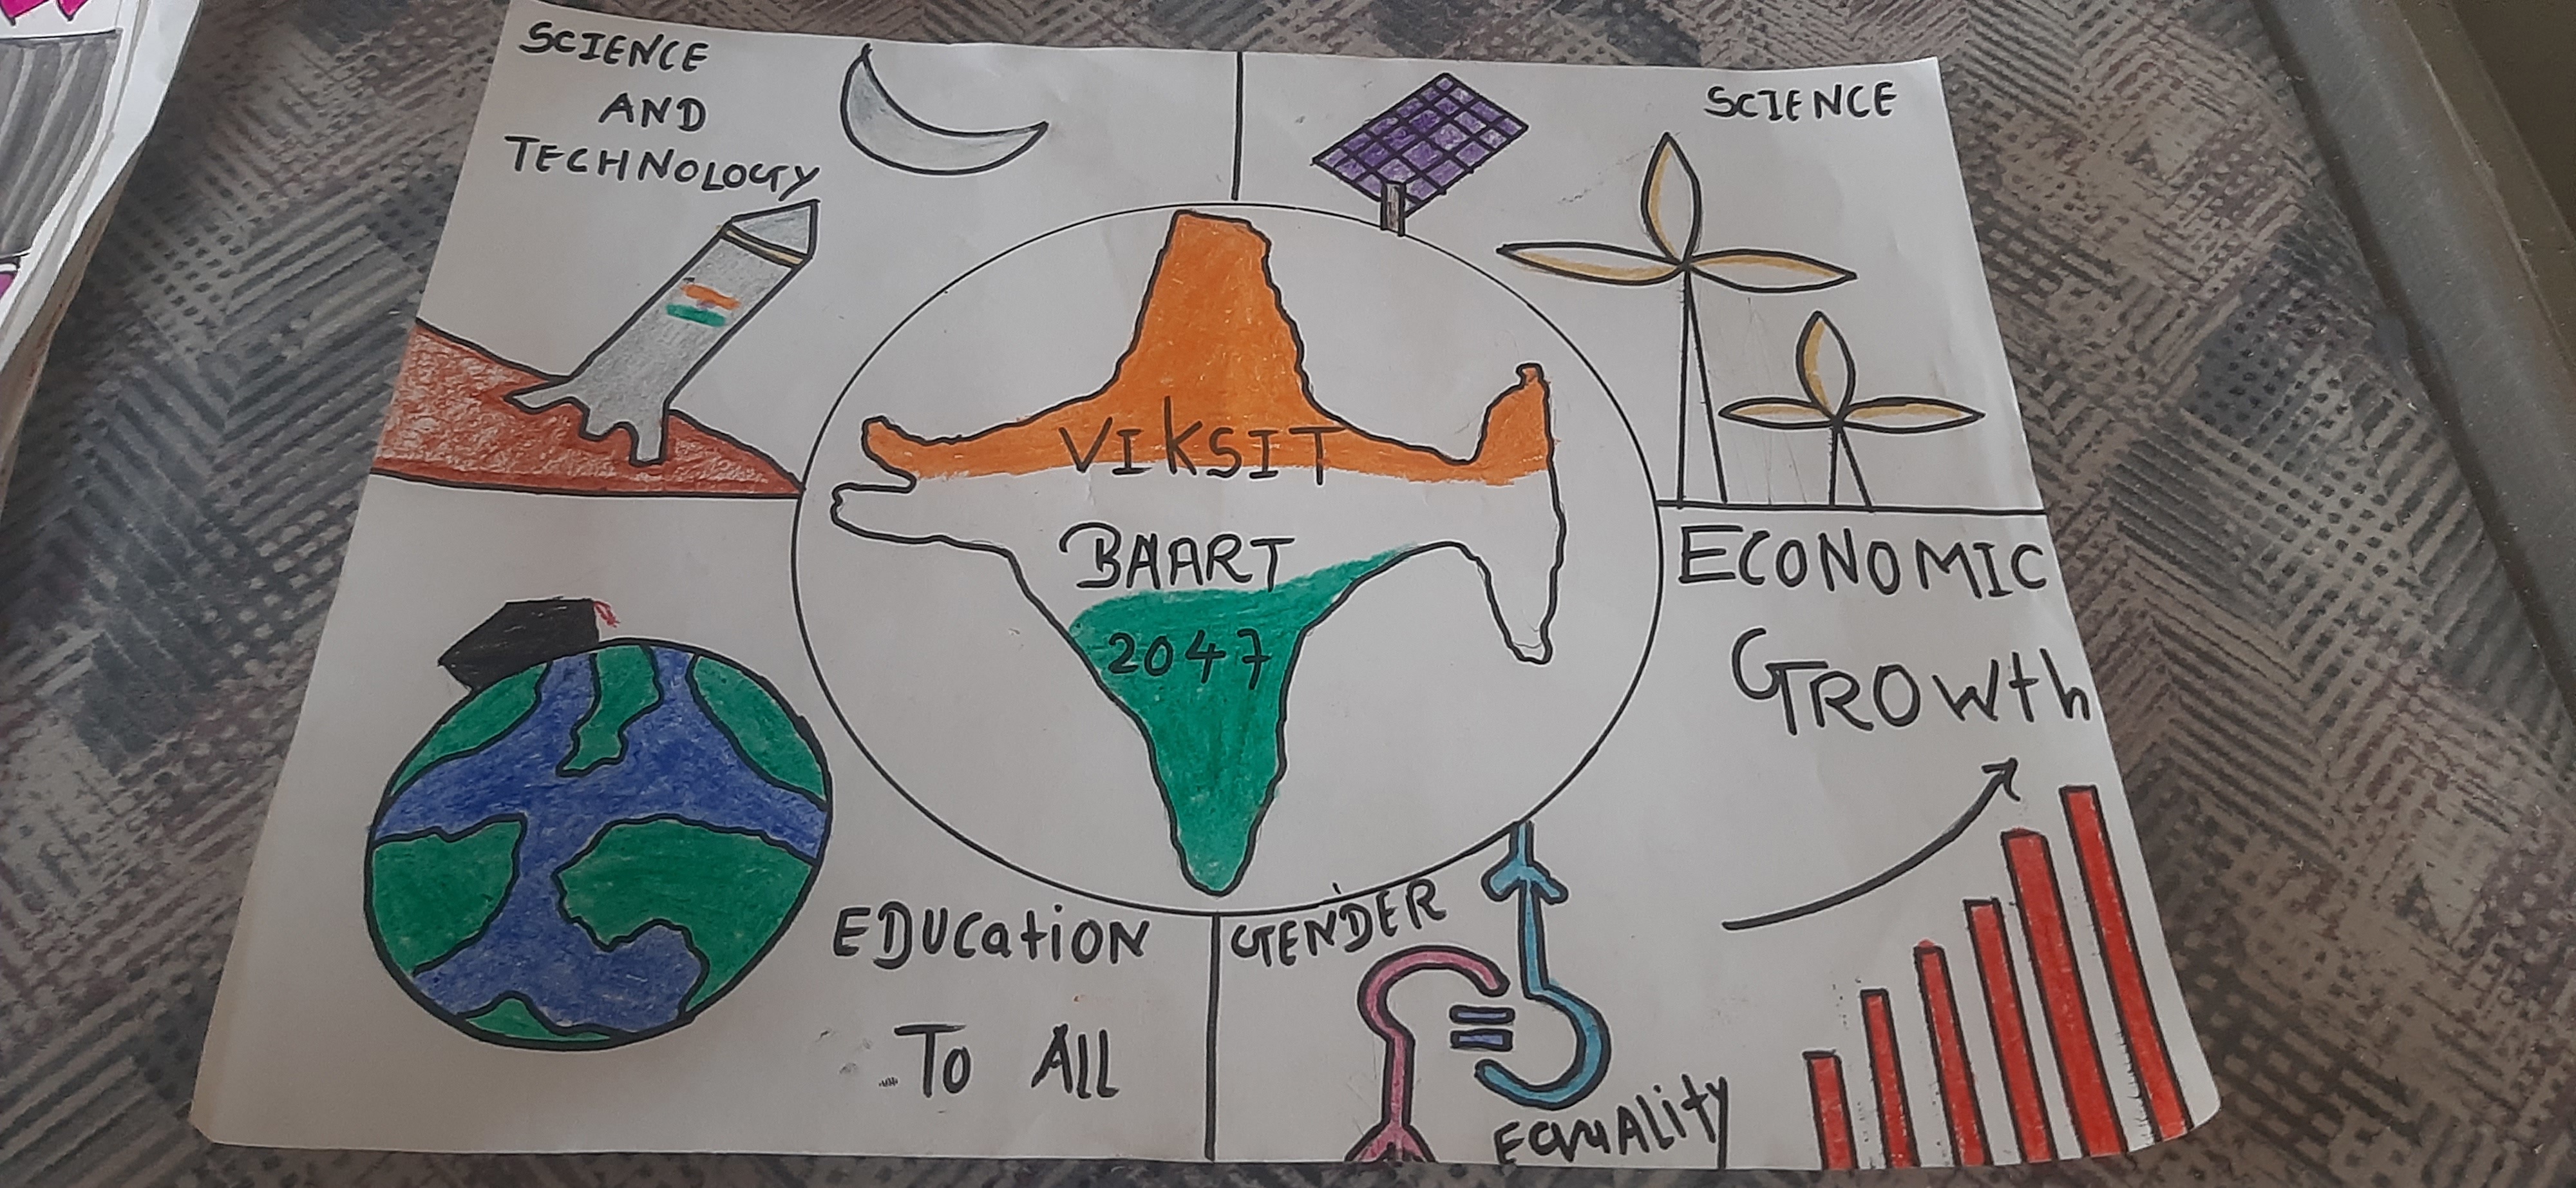 SCIENCE
AND
TECHNOLOGY
SCIENCE
VIKSIT
BHART
2047
ECONOMIC
GROWth
EDUCatiON
To All
GENDER
EQUALity